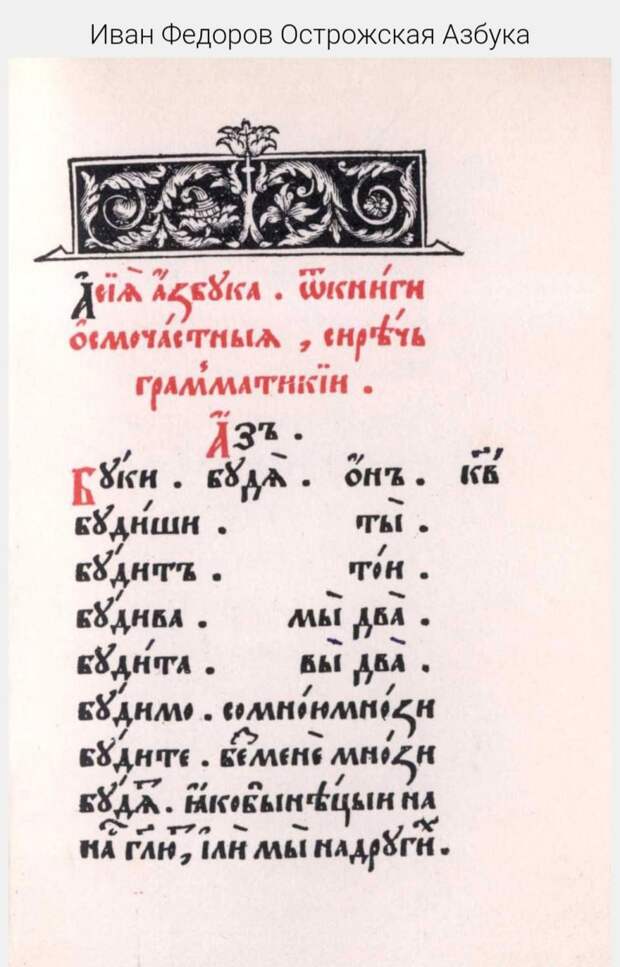 Иван Федоров Острожская Азбука
А҆сїѧ̀ а҆́збꙋка . ѿкни́ги
ѻ҆смоча́стныѧ , сирѣ́чь
грамма́тикїи .
А҆́зъ .
Бꙋ́ки . бꙋдѧ̀ . о҆́нъ . к҃в
бꙋди́ши . ты̀ .
бꙋ́дитъ . то́и .
бꙋ́дива . мы̀ два̀ .
бꙋди́та . вы̀ два̀ .
бꙋ́димо . сомно́юмно́ѕи
бꙋ́дите . беⷥменѐ мно́ѕи
бꙋ́дѧⷮ . ꙗ҆́кобы́нѣ́цыи на
на́ гл҃ю , і҆лѝ мы̀ надрꙋги́ⷯ .